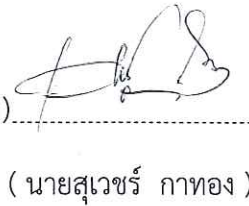 )........................................
( นายสุเวชร์ กาทอง )